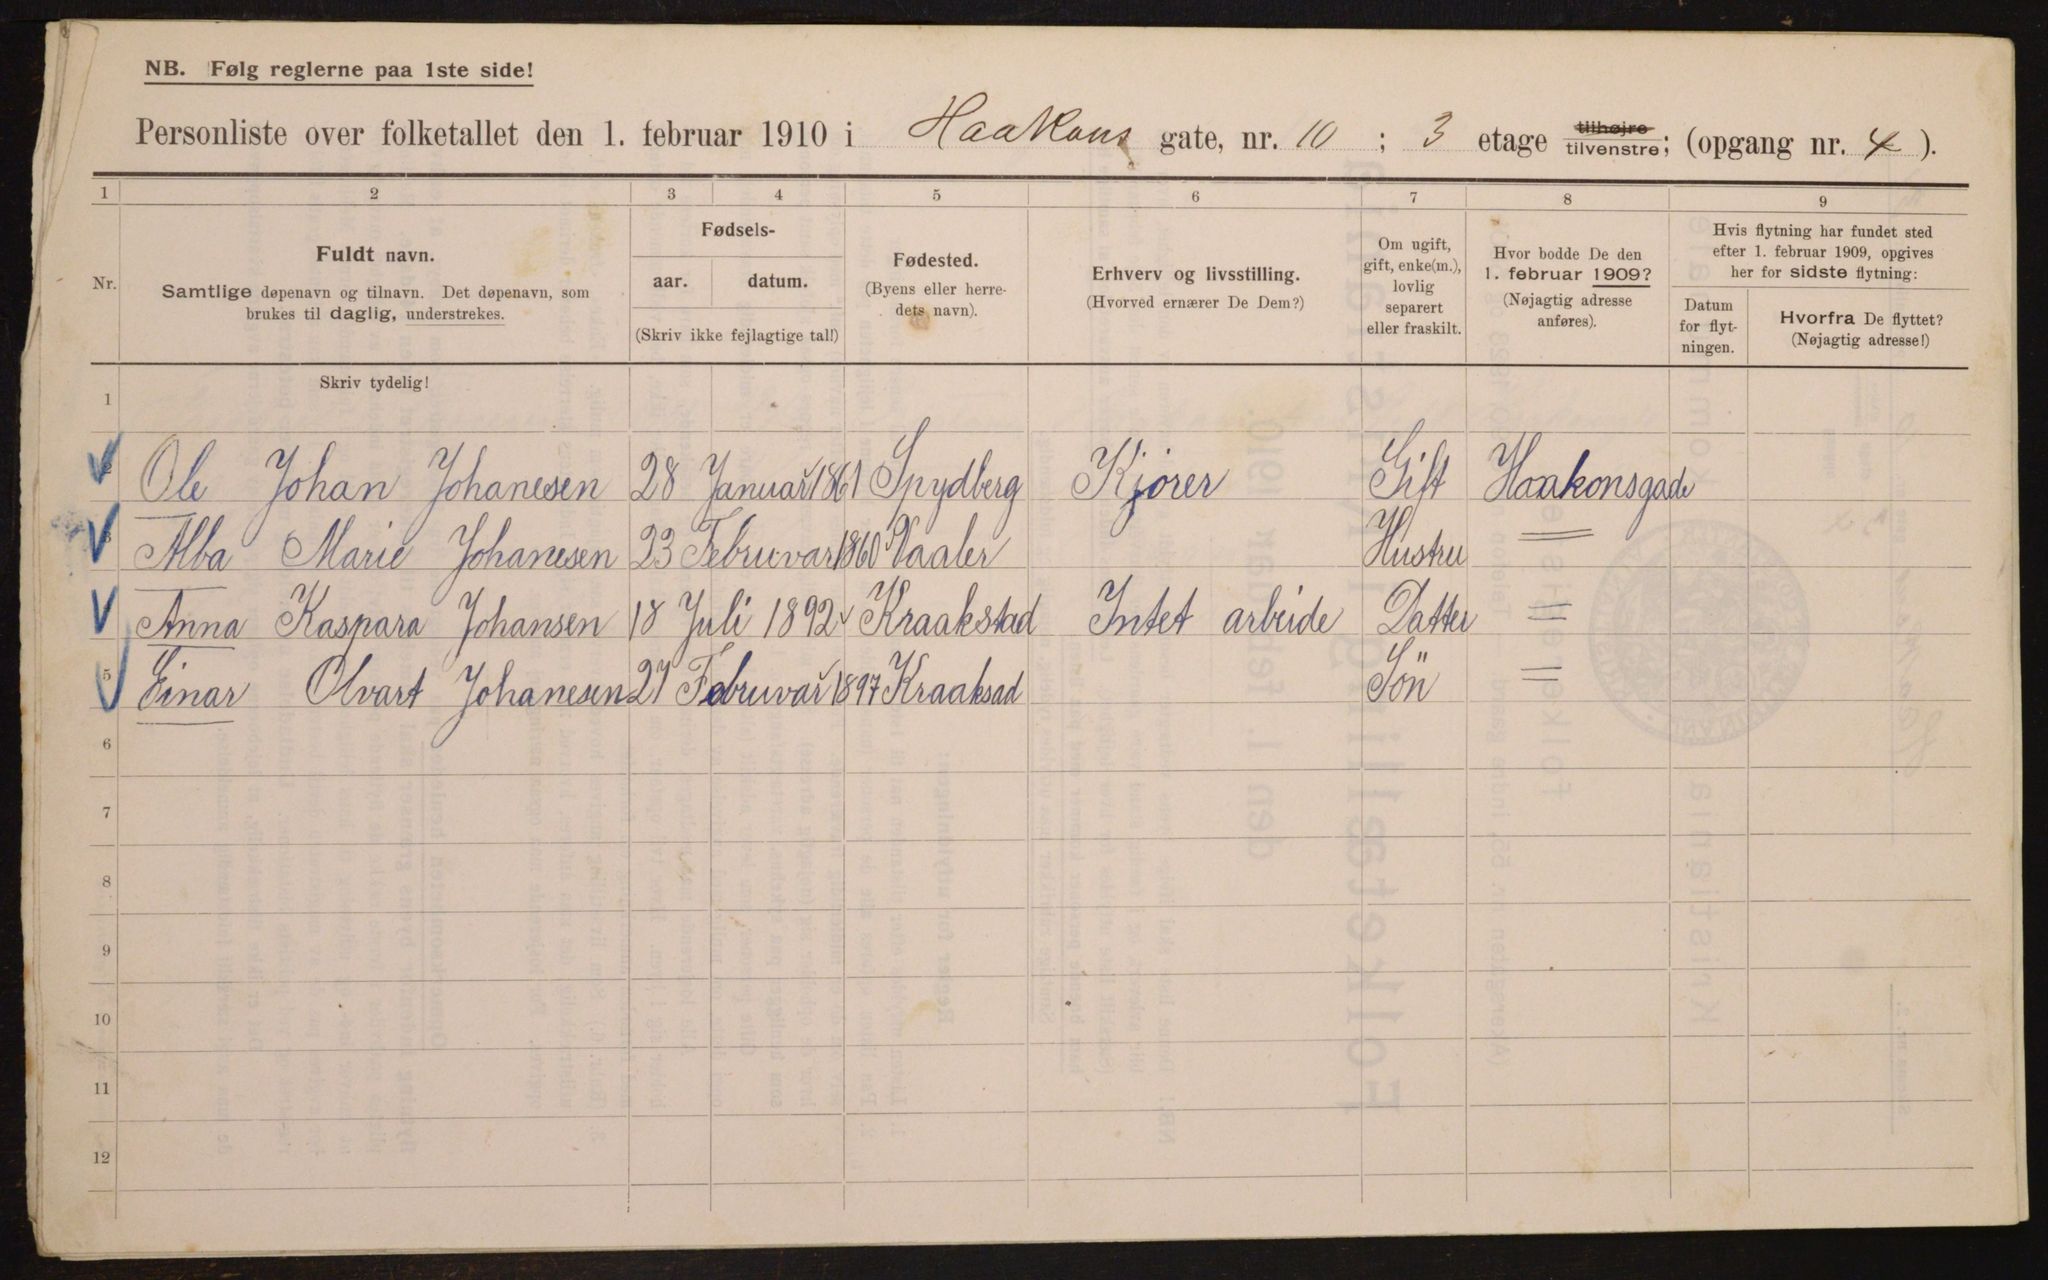 NB. Følg reglerne paa 1ste side!
Personliste over folketallet den 1. februar 1910 i Haakons gate, nr. 10 ; 3 etage tilhøjre tilvenstre; (opgang nr. 4 ).
1 2 3 4 5 6 7 8 9
Nr.
Fuldt navn.
Samtlige døpenavn og tilnavn. Det døpenavn, som
brukes til daglig, understrekes.
Fødsels-
aar. datum.
(Skriv ikke fejlagtige tal!)
Fødested.
(Byens eller herre-
dets navn).
Erhverv og livsstilling.
(Hvorved ernærer De Dem?)
Om ugift,
gift, enke(m.),
lovlig
separert
eller fraskilt.
Hvor bodde De den
1. februar 1909?
(Nøjagtig adresse
anføres).
Hvis flytning har fundet sted
efter 1. februar 1909, opgives
her for sidste flytning:
Datum
for flyt-
ningen.
Hvorfra De flyttet?
(Nøjagtig adresse!)
Skriv tydelig!
1
Ole Johan Johanesen 28 Januar 1861 Spydberg Kjører Gift Haakonsgade
Alba Marie Johanesen 23 Februvar 1860 Vaaler Hustru =
Anna Kaspara Johansen 18 Juli 1892 Kraakstad Intet arbeide Datter =
5 Einar Olvart Johanesen 27 Februvar 1897 Kraaksad Sön =
6
7
8
9
10
11
12